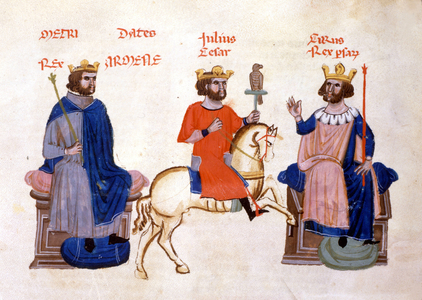 METRI DATES
REX ARMENIE
Julius
Cesar
CIRUS
Rex psarum